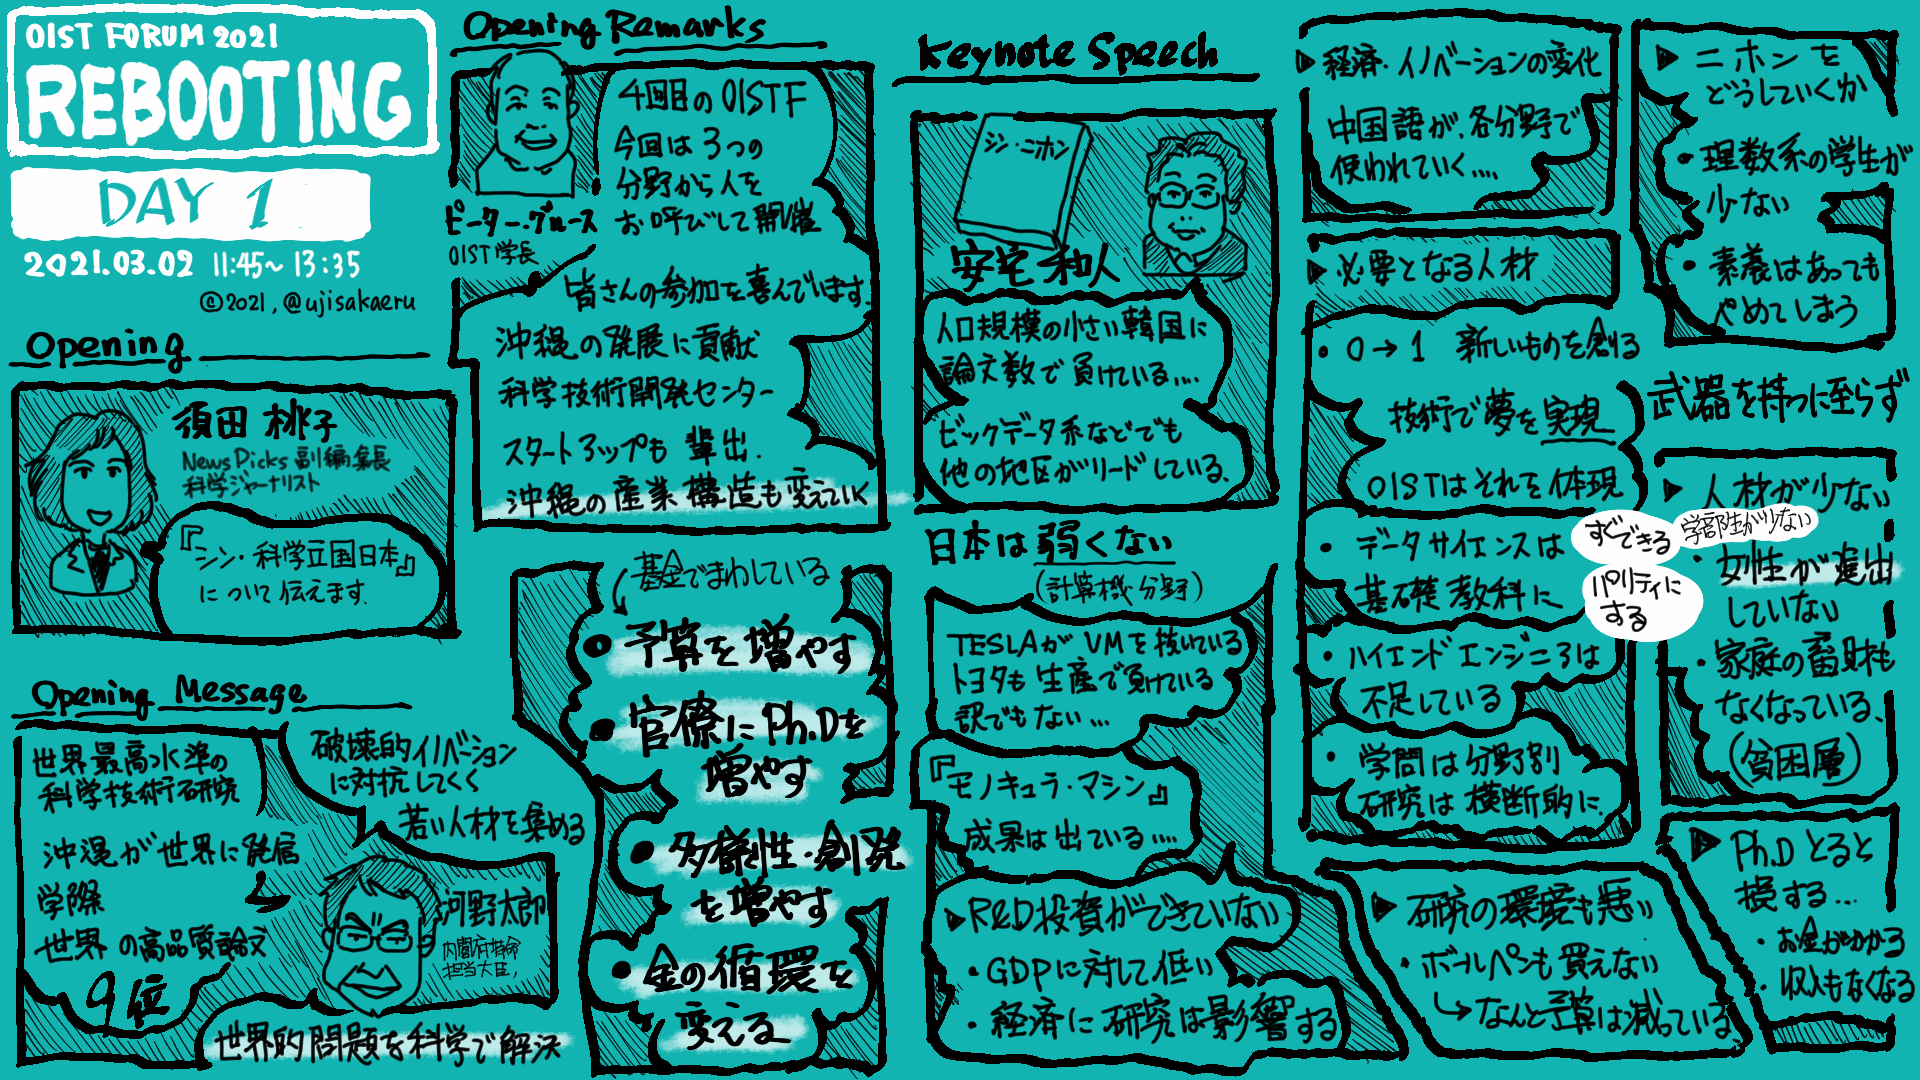 OIST FORUM 2021
REBOOTING
DAY 1
2021.03.02 11:45~13:35
©2021, @ujisakaeru
Opening
須田 桃子
News Picks 副編集長
科学ジャーナリスト
『シン・科学立国日本』
について伝えます.
Opening Message
世界最高水準の
科学技術研究
沖縄が世界に発信
学際
世界の高品質論文
9位
破壊的イノベーション
に対抗してく
若い人材を集める
河野太郎
内閣府特命
担当大臣,
世界的問題を科学で解決
Opening Remarks
ピーター・グルース
OIST学長
4回目の OIST F
今回は3つの
分野から人を
お呼びして開催
皆さんの参加を喜んでいます.
沖縄の発展に貢献
科学技術開発センター
スタートアップも輩出.
沖縄の産業構造も変えていく
基金でまわしている
● 予算を増やす
● 官僚に Ph.Dを
増やす
● 多様性・創発
を増やす
● 金の循環を
変える
Keynote Speech
シン・ニホン
安宅和人
人口規模の小さい韓国に
論文数で負けている....
ビックデータ系などでも
他の地区がリードしている.
日本は弱くない
(計算機分野)
TESLAが VMを抜いている
トヨタも生産で負けている
訳でもない...
『モノキュラ・マシン』
成果は出ている....
▶R&D投資ができていない
・GDPに対して低い
・経済に研究は影響する
▶経済・イノベーションの変化
中国語が、各分野で
使われていく....
▶必要となる人材
・0→1 新しいものを創る
技術で夢を実現
OISTはそれを体現
・データサイエンスは
基礎教科に
すぐできる
パリティに
する
・ハイエンドエンジニアは
不足している
・学問は分野別
研究は横断的に
▶研究の環境も悪い
・ボールペンも買えない
↳なんと予算は減っている
▶ニホンを
どうしていくか
・理数系の学生が
少ない
・素養はあっても
やめてしまう
武器を持つに至らず
▶人材が少ない
学部生が少ない
・女性が進出
していない
・家庭の蓄財も
なくなっている、
(貧困層)
▶Ph.Dとると
損する...
・お金がかかる
・収入もなくなる